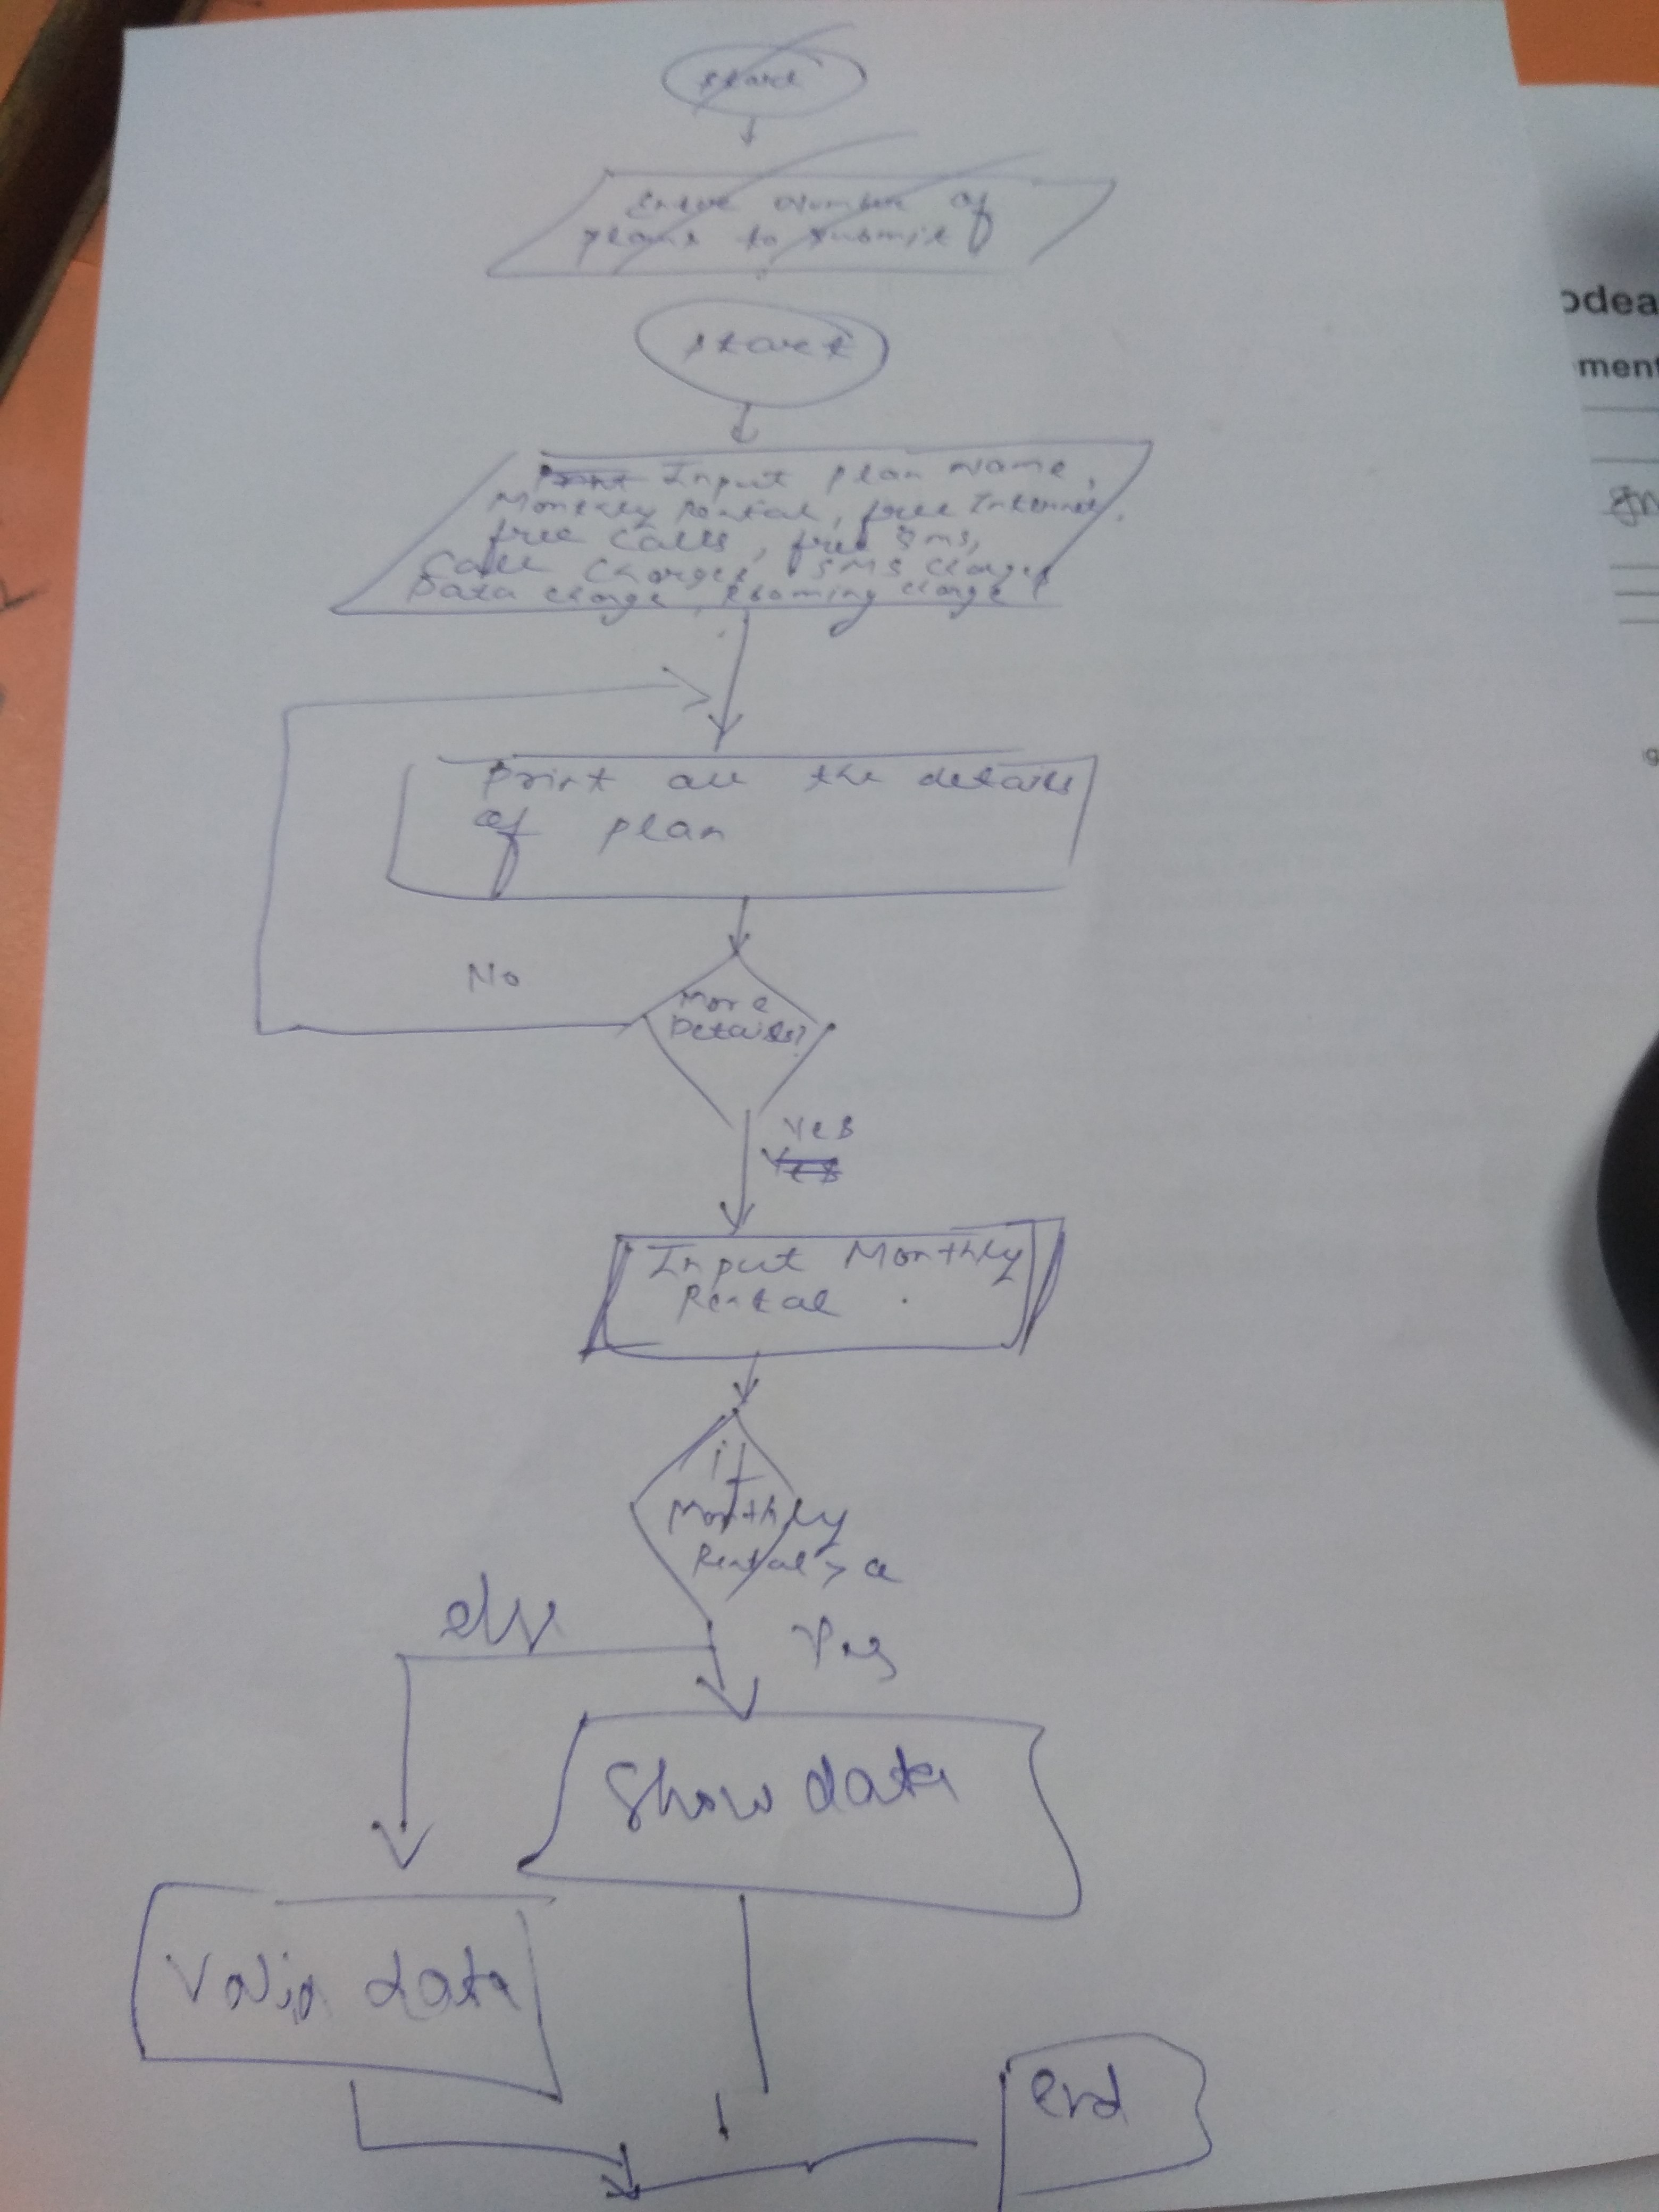 start
Enter Number of
plans to submit
start
Print Input plan Name,
Monthly Rental, free Internet,
free calls, free sms,
Call Charges, SMS charges
Data charge, Roaming charge
Print all the details
of plan
No
More
Details?
Yes
Yes
Input Monthly
Rental
if
Monthly
Rental > a
else
Yes
Show data
Valid data
end
odea
ment